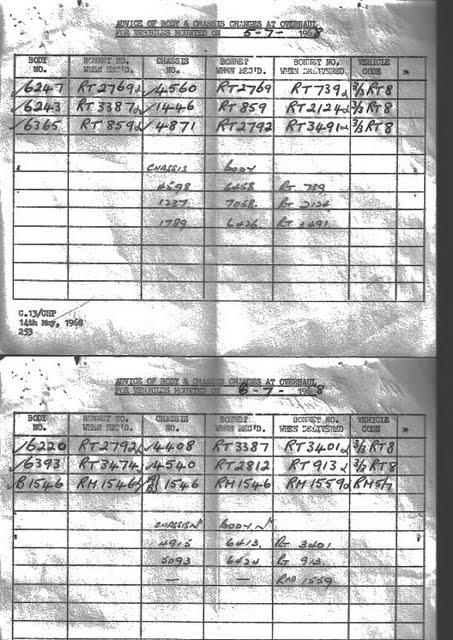 ADVICE OF BODY & CHASSIS CHANGES AT OVERHAUL
FOR VEHICLES MOUNTED ON 5-7- 1968
BODY NO. BONNET NO. WHEN REC'D. CHASSIS NO. BONNET WHEN REC'D. BONNET NO. WHEN DELIVERED. VEHICLE CODE
6247 RT2769 4560 RT2769 RT739 3/3RT8
6243 RT3387 1446 RT859 RT2124 3/3RT8
6365 RT859 4871 RT2792 RT3491 3/3RT8
CHASSIS BODY
4598 6458 RT 739
1237 7058 RT 2124
1789 6426 RT 3491
C.13/CHP
14th May, 1968
253
ADVICE OF BODY & CHASSIS CHANGES AT OVERHAUL
FOR VEHICLES MOUNTED ON 6-7- 1968
BODY NO. BONNET NO. WHEN REC'D. CHASSIS NO. BONNET WHEN REC'D. BONNET NO. WHEN DELIVERED VEHICLE CODE
6220 RT2792 4408 RT3387 RT3401 3/3RT8
6393 RT3474 4540 RT2812 RT913 3/3RT8
B1546 RM1546 1546 RM1546 RM1559 RM5/7
CHASSIS Nº BODY Nº
4915 6413 RT 3401
5093 6424 RT 913
— — RM 1559